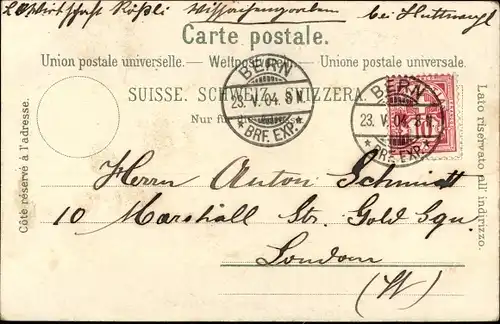 Wirtschaft Rößli bei Huttwyl
Carte postale.
Union postale universelle. — Weltpostverein. — Unione postale universale.
SUISSE. SCHWEIZ. SVIZZERA.
Nur für
BERN
23. V. 04. 8 V.
★ BRF. EXP. ★
BERN
23. V. 04. 8 V.
★ BRF. EXP. ★
10
Côté réservé à l'adresse.
Lato riservato all'indirizzo.
Herrn Anton Schmidt
10 Marshall Str. Gold Squ.
London
(W)